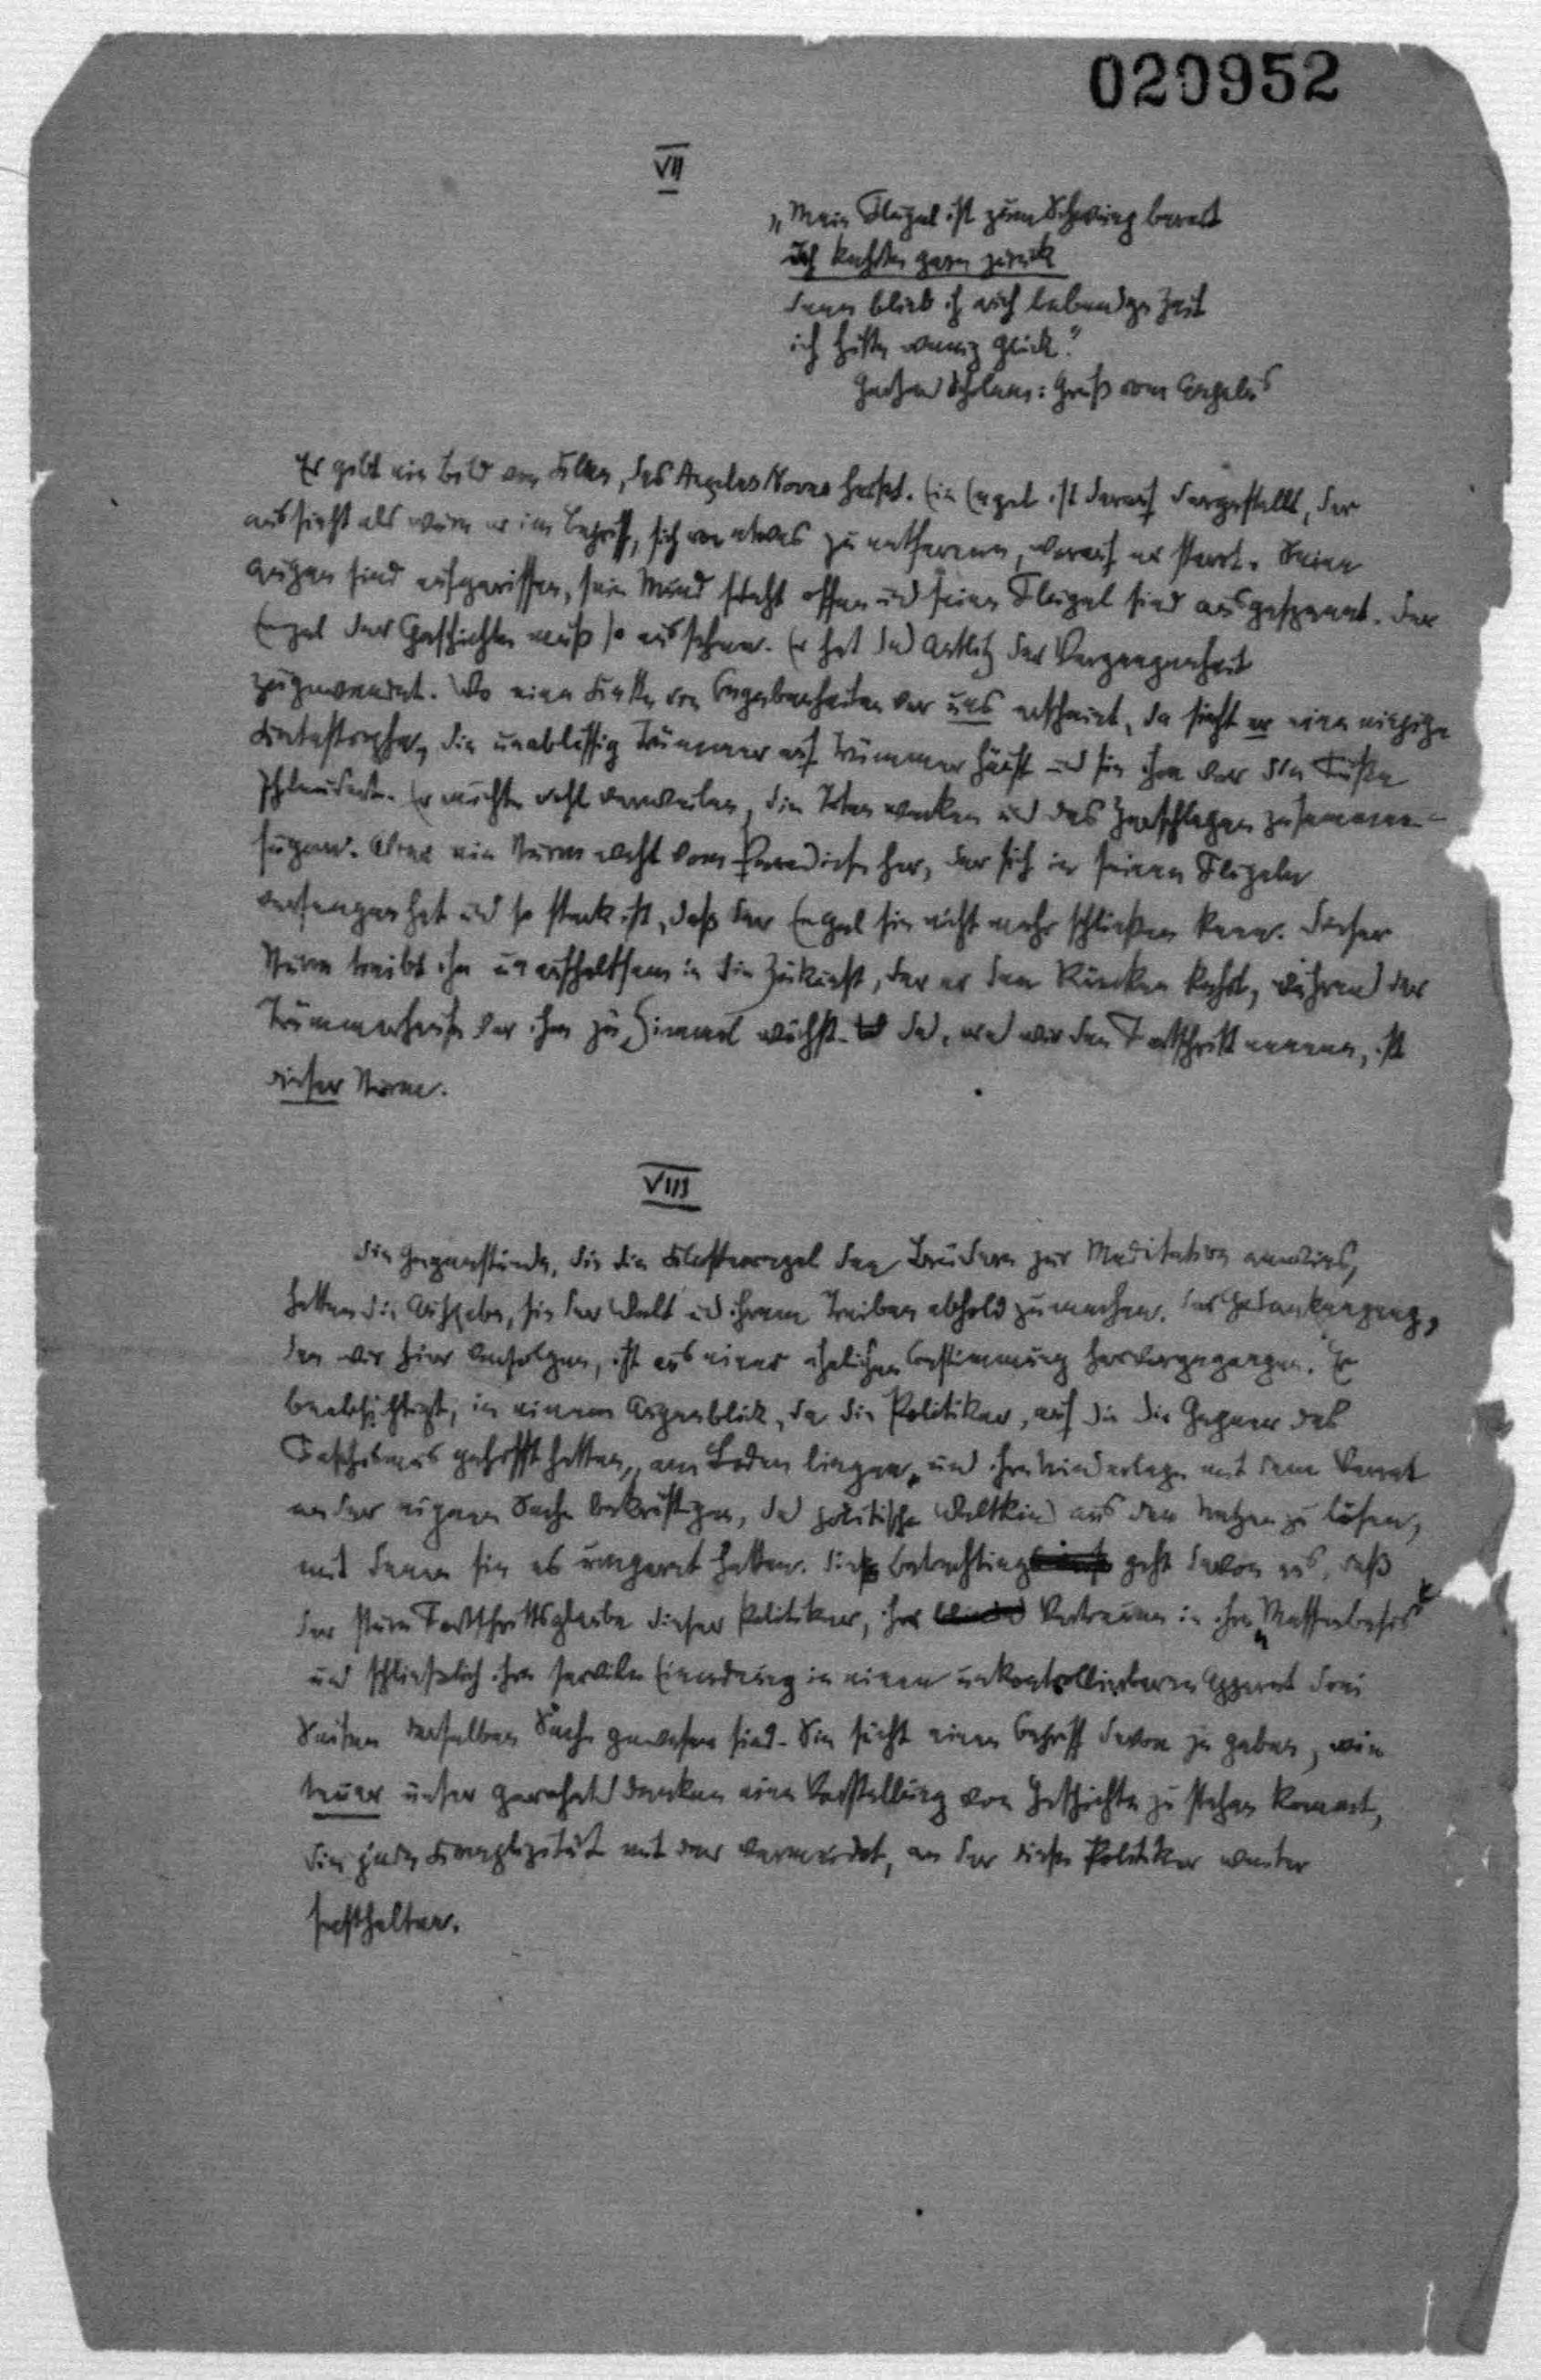 020952
VII
„Mein Flügel ist zum Schwung bereit
Ich kehrte gern zurück
denn blieb ich auch lebendge Zeit
ich hätte wenig Glück."
Gerhard Scholem: Gruß vom Angelus
Es gibt ein Bild von Klee, das Angelus Novus heißt. Ein Engel ist darauf dargestellt, der
aussieht als wäre er im Begriff, sich von etwas zu entfernen, worauf er starrt. Seine
Augen sind aufgerissen, sein Mund steht offen und seine Flügel sind ausgespannt. Der
Engel der Geschichte muß so aussehen. Er hat das Antlitz der Vergangenheit
zugewendet. Wo eine Kette von Begebenheiten vor uns erscheint, da sieht er eine einzige
Katastrophe, die unablässig Trümmer auf Trümmer häuft und sie ihm vor die Füße
schleudert. Er möchte wohl verweilen, die Toten wecken und das Zerschlagene zusammen-
fügen. Aber ein Sturm weht vom Paradiese her, der sich in seinen Flügeln
verfangen hat und so stark ist, daß der Engel sie nicht mehr schließen kann. Dieser
Sturm treibt ihn unaufhaltsam in die Zukunft, der er den Rücken kehrt, während der
Trümmerhaufe vor ihm zum Himmel wächst. Das, was wir den Fortschritt nennen, ist
dieser Sturm.
VIII
Die Gegenstände, die die Klosterregel den Brüdern zur Meditation anwies,
hatten die Aufgabe, sie der Welt und ihrem Treiben abhold zu machen. Der Gedankengang,
den wir hier verfolgen, ist aus einer ähnlichen Bestimmung hervorgegangen. Er
beabsichtigt, in einem Augenblick, da die Politiker, auf die die Gegner des
Faschismus gehofft hatten, am Boden liegen und ihre Niederlage mit dem Verrat
an der eigenen Sache bekräftigen, das politische Weltkind aus den Netzen zu lösen,
mit denen sie es umgarnt hatten. Die Betrachtung geht davon aus, daß
der sture Fortschrittsglaube dieser Politiker, ihr Vertrauen in ihre „Massenbasis"
und schließlich ihre servile Einordnung in einen unkontrollierbaren Apparat drei
Seiten derselben Sache gewesen sind. Sie sucht einen Begriff davon zu geben, wie
teuer unser gewohntes Denken eine Vorstellung von Geschichte zu stehen kommt,
die jede Komplizität mit der vermeidet, an der diese Politiker weiter
festhalten.